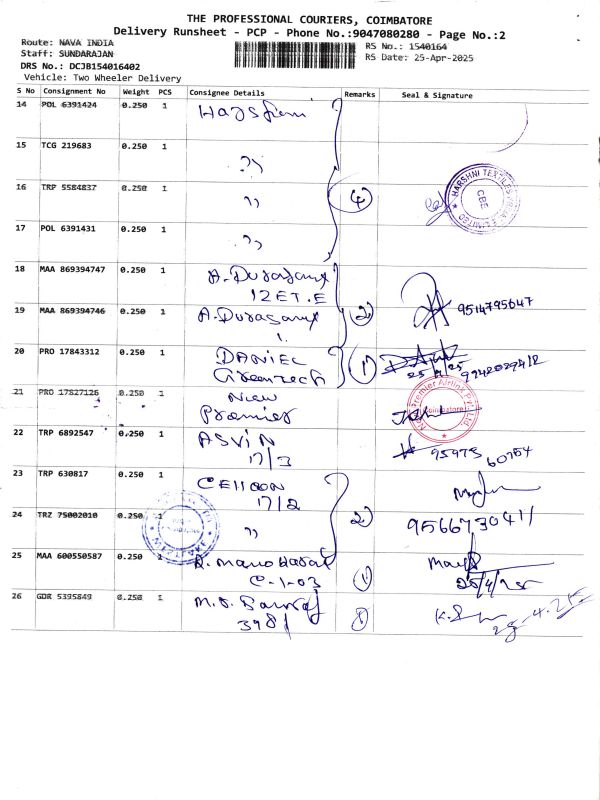 THE PROFESSIONAL COURIERS, COIMBATORE
Delivery Runsheet - PCP - Phone No.:9047080280 - Page No.:2
Route: NAVA INDIA
Staff: SUNDARAJAN
DRS No.: DCJB154016402
Vehicle: Two Wheeler Delivery
RS No.: 1540164
RS Date: 25-Apr-2025
S No Consignment No Weight PCS Consignee Details Remarks Seal & Signature
14 POL 6391424 0.250 1
15 TCG 219683 0.250 1 ,,
16 TRP 5584837 0.250 1 ,, 4
HARSHNI TEXTILES LIMITED CBE
17 POL 6391431 0.250 1 ,,
18 MAA 869394747 0.250 1
12 ET.E
2 9514795647
19 MAA 869394746 0.250 1
20 PRO 17843312 0.250 1 DANIEL
Greentech
1
25/4/25
21 PRO 17827126 0.250 1 New
Premier
Premier Airlink Pvt. Ltd. Coimbatore
22 TRP 6892547 0.250 1 ASVIN
17/3
95973 60754
23 TRP 630817 0.250 1
17/2
24 TRZ 75002010 0.250 1 ,, 2
9566730411
25 MAA 600550587 0.250 1 A. Manoharan
C-1-03
1
25/4/25
26 GDR 5395849 0.250 1
3981
1